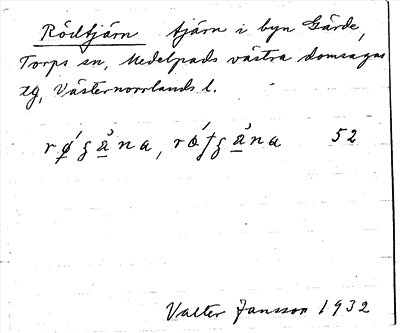 Rödtjärn tjärn i byn Gärde,
Torps sn, Medelpads västra domsagas
tg, Västernorrlands l.
52
Valter Jansson 1932